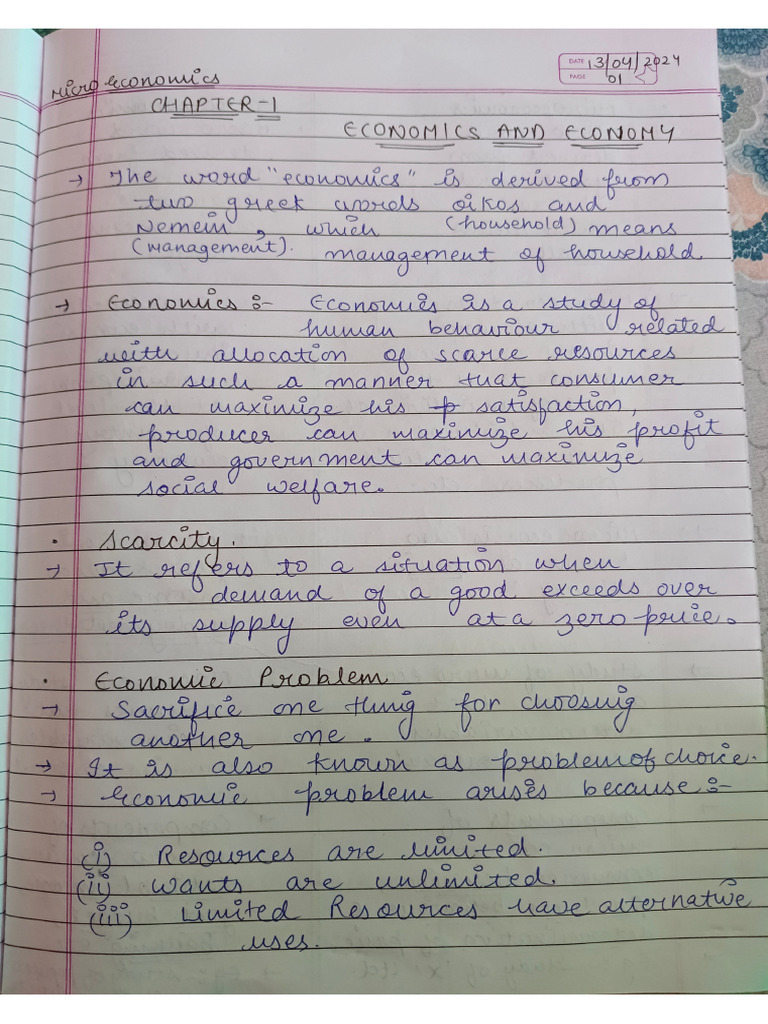 Micro economics
DATE 13/04/2024
PAGE 01
CHAPTER-1
ECONOMICS AND ECONOMY
→ The word "economics" is derived from
two greek words oikos and
Nemein, which (household) means
(management). management of household.
→ Economics :- Economics is a study of
human behaviour related
with allocation of scarce resources
in such a manner that consumer
can maximize his satisfaction,
producer can maximize his profit
and government can maximize
social welfare.
• Scarcity.
→ It refers to a situation when
demand of a good exceeds over
its supply even at a zero price.
• Economic Problem
→ Sacrifice one thing for choosing
another one.
→ It is also known as problem of choice.
→ Economic problem arises because :-
(i) Resources are limited.
(ii) wants are unlimited.
(iii) Limited Resources have alternative
uses.